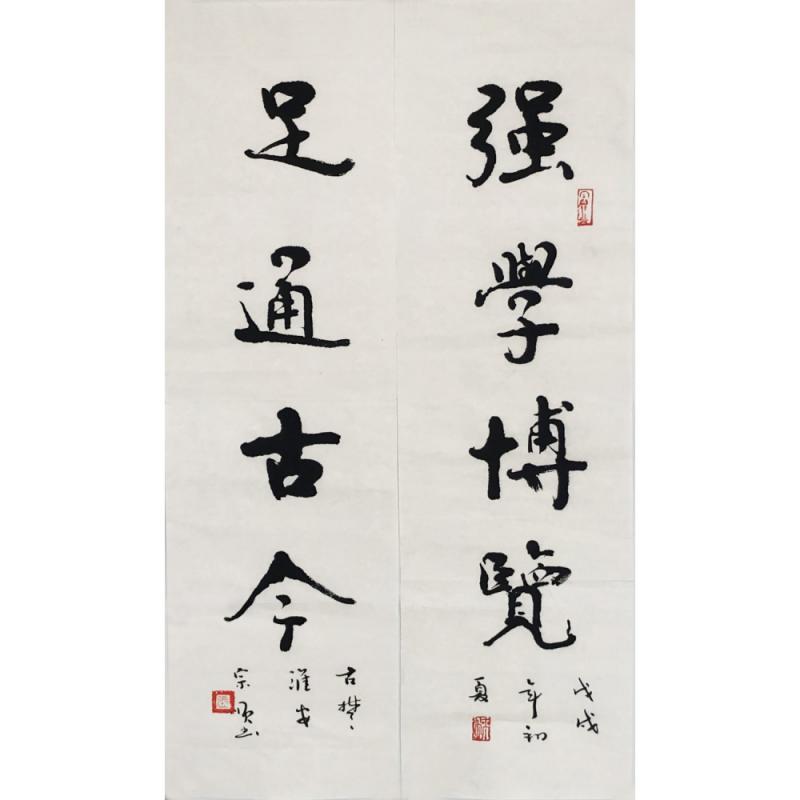 强學博覽
戊戌
年初
夏
足通古今
古楚
淮安
宗顺书